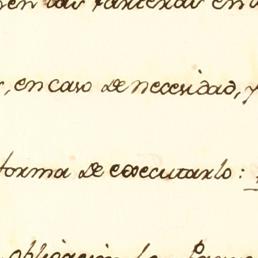 en las
, en caso de necesidad, y
forma de executarlo:
obligación